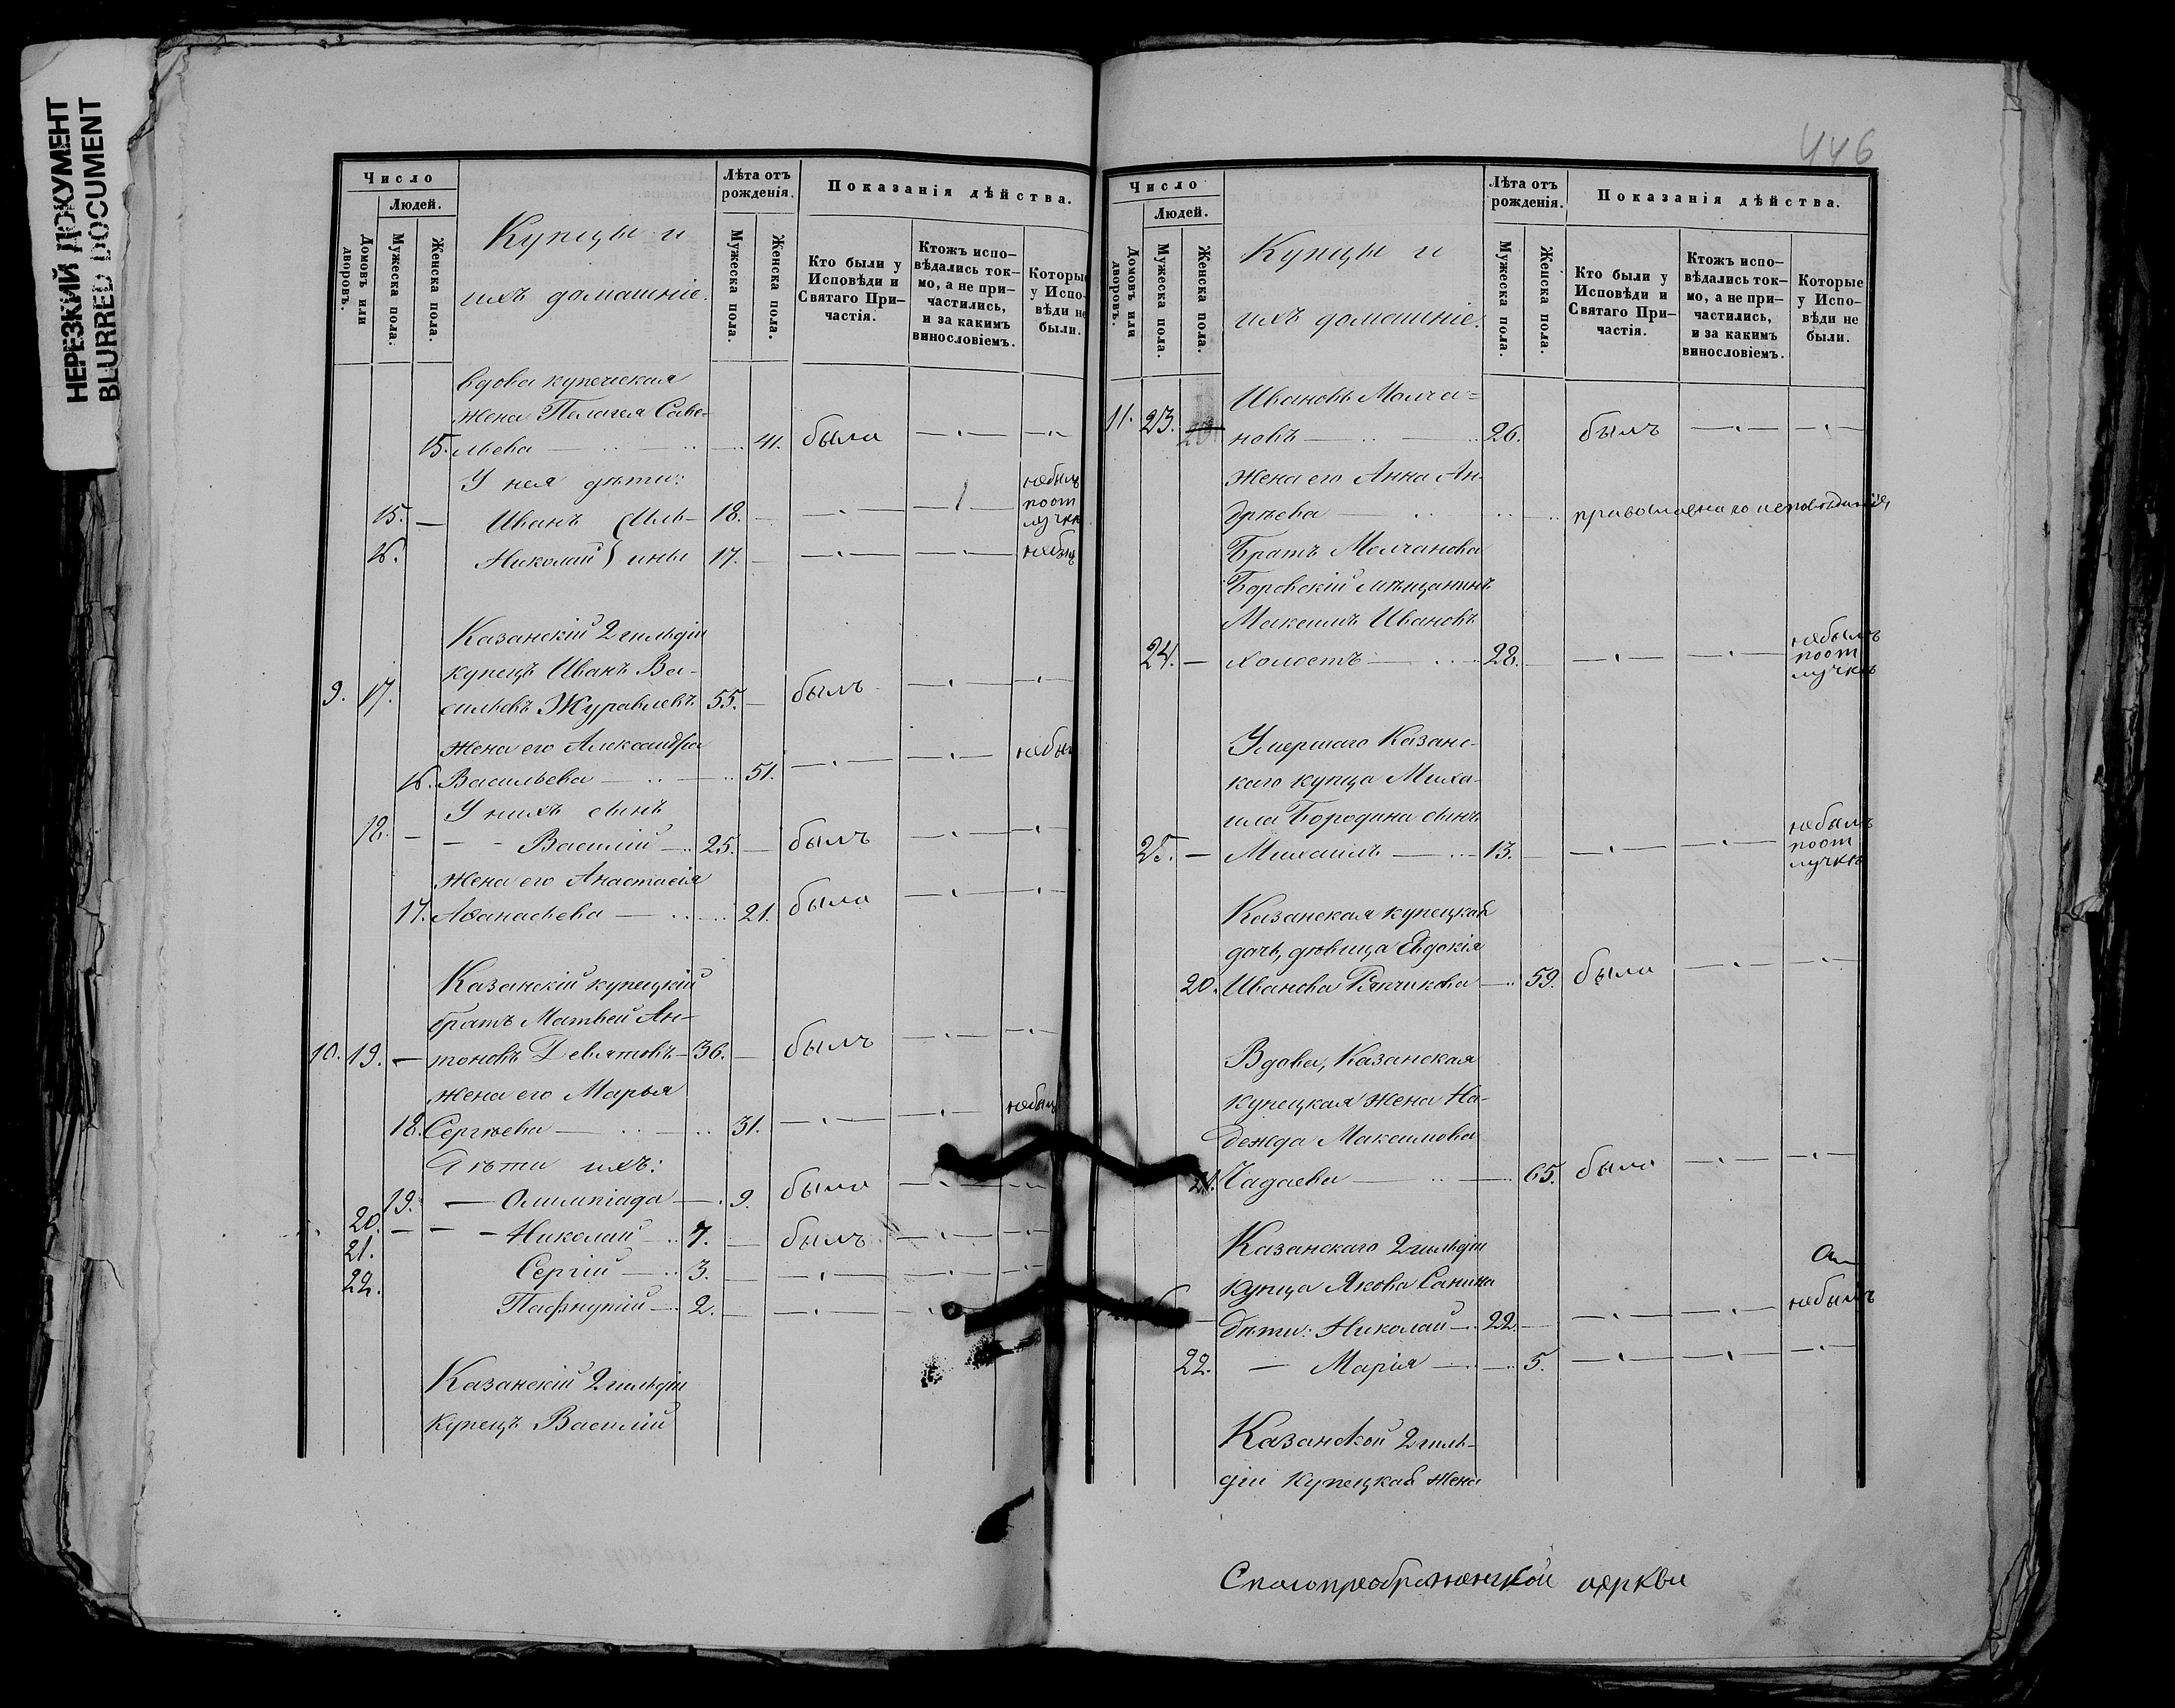 НЕРЕЗКИЙ ДОКУМЕНТ
BLURRED DOCUMENT
Число
Людей.
Домовъ или дворовъ.
Мужеска пола.
Женска пола.
Купцы и
ихъ домашніе.
Лѣта отъ рожденія.
Мужеска пола.
Женска пола.
Показанія дѣйства.
Кто были у Исповѣди и Святаго При-частія.
Ктожъ испо-вѣдались ток-мо, а не при-частились, и за какимъ винословіемъ.
Которые у Испо-вѣди не были.
вдова купеческая
жена Пелагея Саве-
15. льева — 41. была
У нея дѣти:
15. — Иванъ Иль- 18. — небылъ по от лучкѣ
16. Николай ины 17. — небы
Казанскій 2 гильдіи
купецъ Иванъ Ва-
9. 17. сильевъ Журавлевъ 55. — былъ
жена его Александра
16. Васильева — 51. небы
У нихъ сынъ
18. — Василій — 25. — былъ
жена его Анастасія
17. Аѳанасьева — 21. была
Казанскій купецкій
братъ Матвей Ан-
10. 19. — тоновъ Девятовъ — 36. — былъ
жена его Марья
18. Сергѣева — 31. небы
Дѣти ихъ:
19. — Олимпіада — 9. была
20. — Николай — 7. — былъ
21. Сергій — 3. —
22. Пафнутій — 2. —
Казанскій 2 гильдіи
купецъ Василій
446
Число
Людей.
Домовъ или дворовъ.
Мужеска пола.
Женска пола.
Купцы и
ихъ домашніе.
Лѣта отъ рожденія.
Мужеска пола.
Женска пола.
Показанія дѣйства.
Кто были у Исповѣди и Святаго При-частія.
Ктожъ испо-вѣдались ток-мо, а не при-частились, и за какимъ винословіемъ.
Которые у Испо-вѣди не были.
Ивановъ Молча-
11. 23. новъ — 26. былъ
жена его Анна Ан-
дрѣева — православнаго исповѣданія,
Братъ Молчанова
Боровскій мѣщанинъ
Максимъ Ивановъ
24. — холостъ — 28. небылъ по от лучкѣ
Умершаго Казанс-
каго купца Миха-
ила Бородина сынъ
25. — Михаилъ — 13. небылъ по от лучкѣ
Казанская купецкая
дочь, дѣвица Евдокія
20. Иванова Рѣпчикова — 59. была
Вдова, Казанская
купецкая жена На-
дежда Максимова
21. Чадаева — 65. была
Казанскаго 2 гильдіи
купца Якова Санина
дѣти: Николай — 22. — небылъ
22. — Марія — 5.
Казанской 2 гиль-
діи купецкая жена
Спасопреображенской церкви